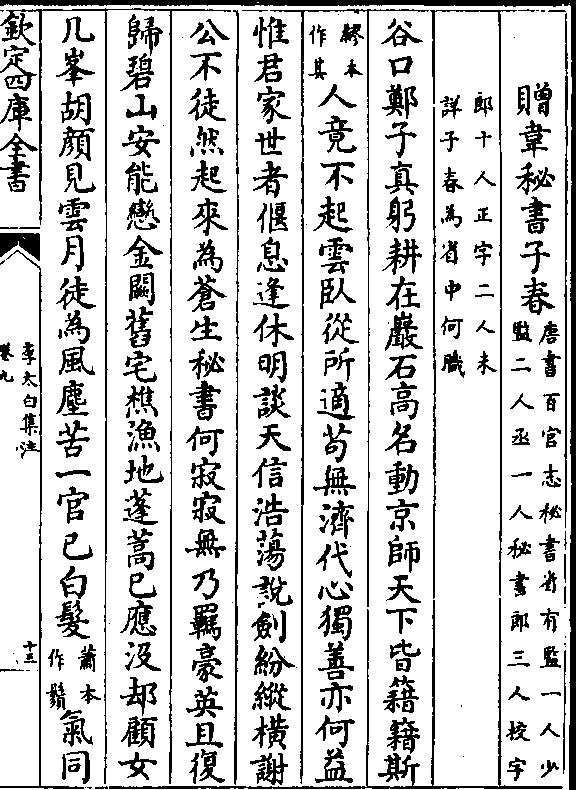 贈韋秘書子春唐書百官志秘書省有監一人少
監二人丞一人秘書郎三人校字
郎十人正字二人未
詳子春為省中何職
谷口鄭子真躬耕在巖石高名動京師天下皆籍籍斯
繆本作其人竟不起雲臥從所適苟無濟代心獨善亦何益
惟君家世者偃息逢休明談天信浩蕩說劍紛縱橫謝
公不徒然起來為蒼生秘書何寂寂無乃羈豪英且復
歸碧山安能戀金闕舊宅樵漁地蓬蒿已應沒却顧女
几峯胡顏見雲月徒為風塵苦一官已白髮蕭本作鬚氣同
欽定四庫全書
李太白集注
卷九
十三